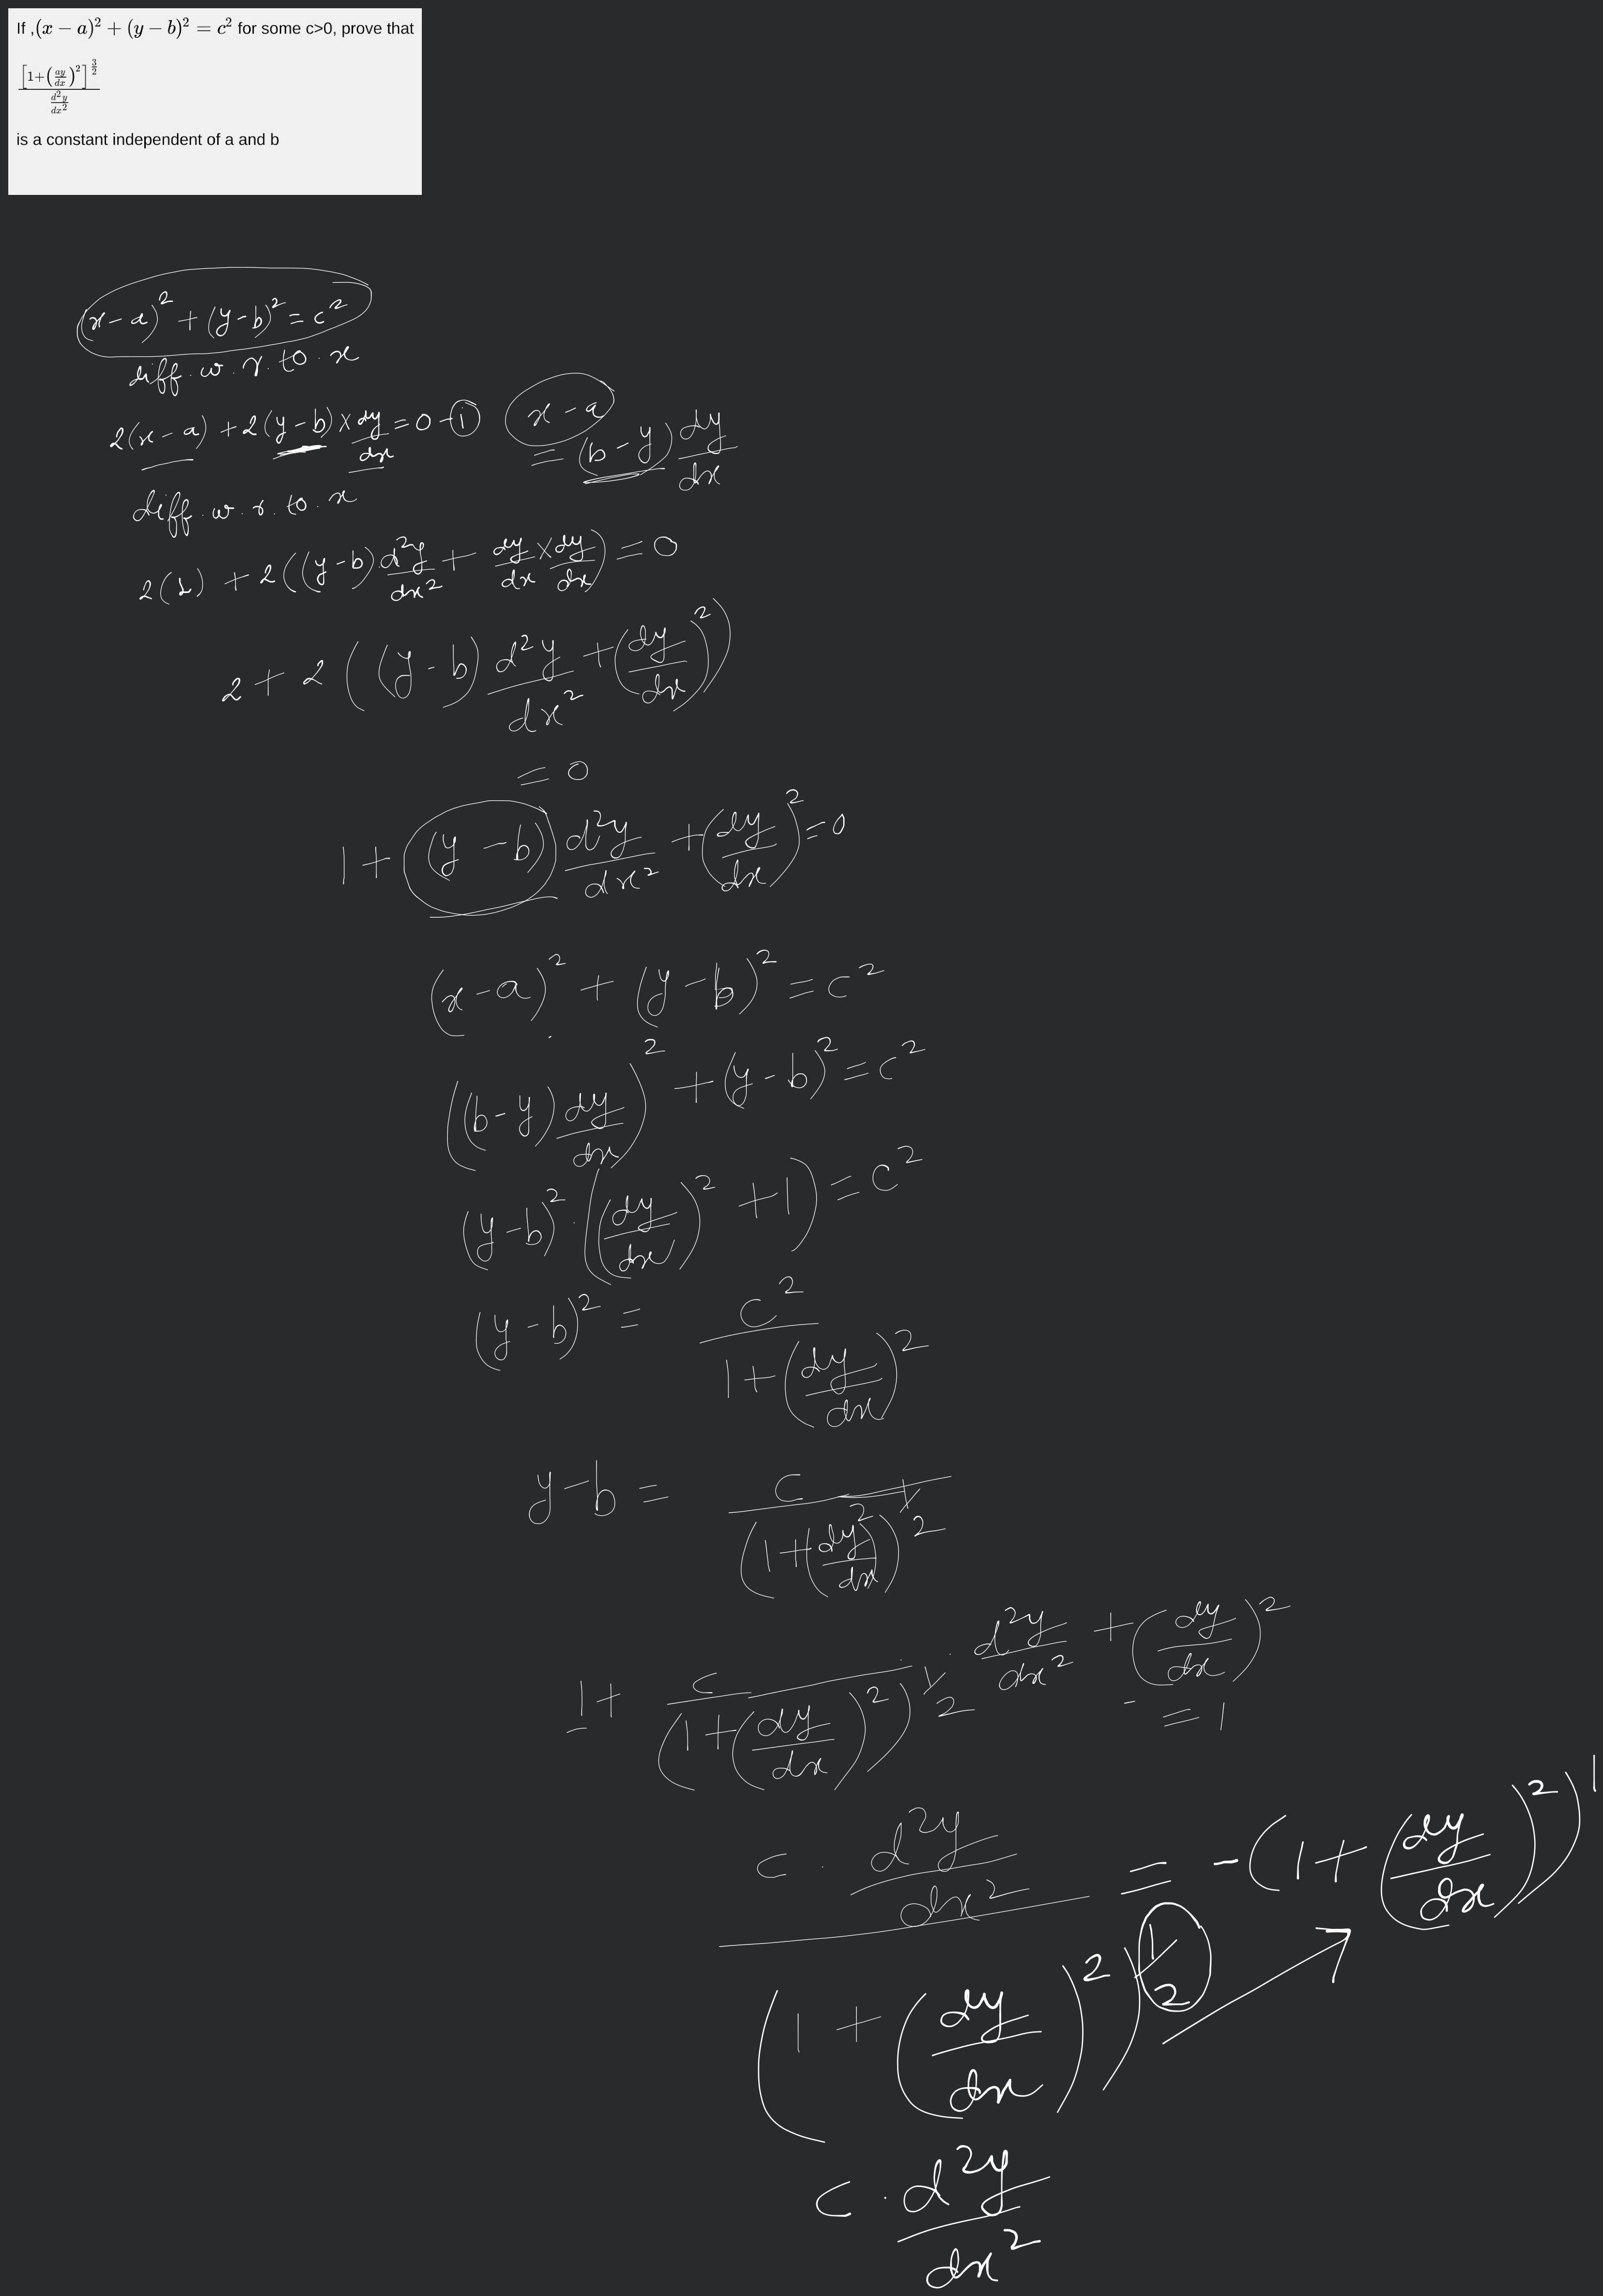 If ,(x − a)² + (y − b)² = c² for some c>0, prove that
[1+(ay/dx)²]^(3/2) / (d²y/dx²)
is a constant independent of a and b
(x-a)² + (y-b)² = c²
diff. w. r. to. x
2(x-a) + 2(y-b) × dy/dx = 0 - ①
x - a
= (b-y) dy/dx
diff. w. r. to. x
2(1) + 2((y-b).d²y/dx² + dy/dx × dy/dx) = 0
2 + 2((y-b) d²y/dx² + (dy/dx)²)
= 0
1 + (y-b) d²y/dx² + (dy/dx)² = 0
(x-a)² + (y-b)² = c²
((b-y) dy/dx)² + (y-b)² = c²
(y-b)² . ((dy/dx)² + 1) = c²
(y-b)² = c² / (1+(dy/dx)²)
y-b = c / (1+(dy/dx)²)^(1/2)
1 + c / (1+(dy/dx)²)^(1/2) . d²y/dx² + (dy/dx)²
= 1
c . d²y/dx² / (1+(dy/dx)²)^(1/2) = -(1+(dy/dx)²)^1
c . d²y/dx²